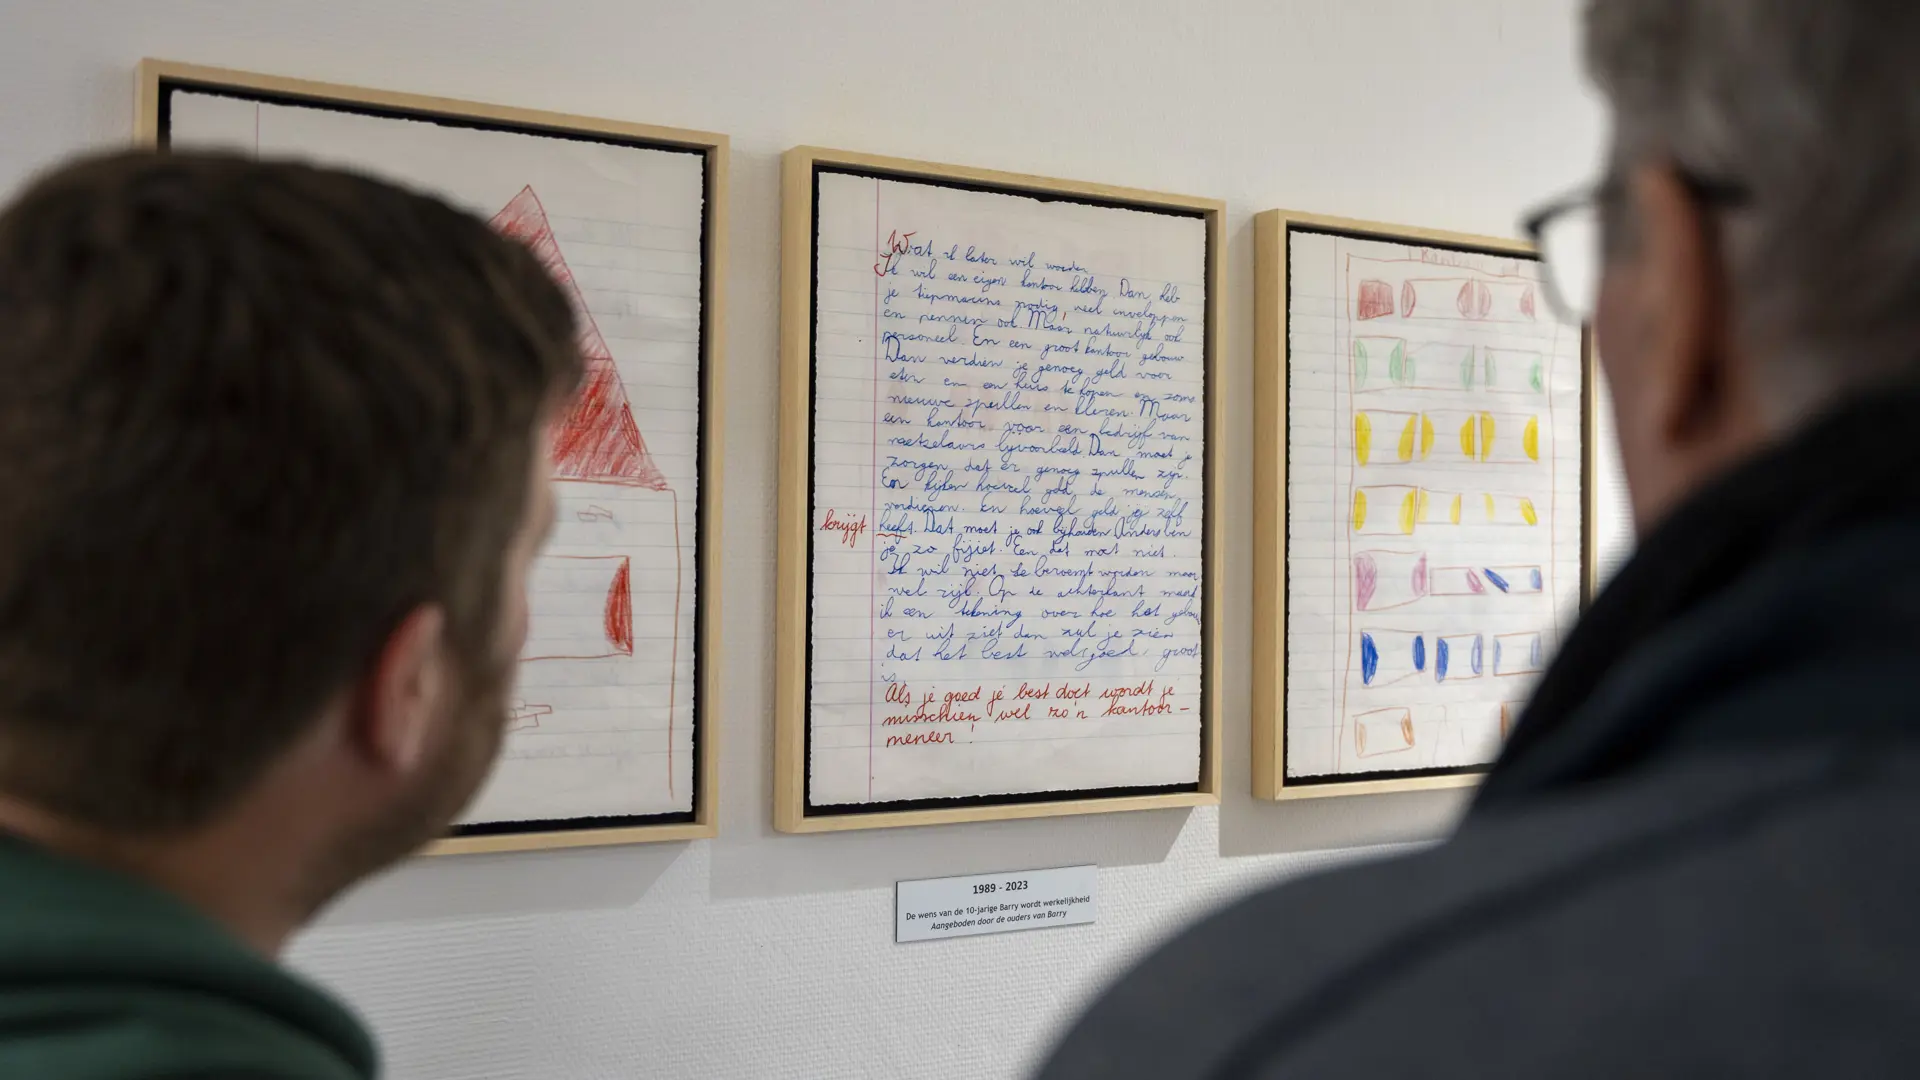 Wat ik later wil worden.
Ik wil een eigen kantoor hebben. Dan heb
je tiepmacins nodig, veel enveloppen
en pennen ook. Maar natuurlijk ook
personeel. En een groot kantoor gebouw
Dan verdien je genoeg geld voor
eten en een huis te kopen en soms
nieuwe spullen en kleren. Maar
een kantoor voor een bedrijf van
metselaars bijvoorbeeld. Dan moet je
zorgen dat er genoeg spullen zijn.
En kijken hoeveel geld de mensen
verdienen. En hoeveel geld jij zelf
krijgt heeft. Dat moet je ook bijhouden Anders ben
je zo fijiet. En dat moet niet.
Ik wil niet te beroemt worden maar
wel rijk. Op de achterkant maak
ik een tekening over hoe het gebouw
er uit ziet dan zul je zien
dat het best wel goed, groot
is.
Als je goed je best doet wordt je
misschien wel zo'n kantoor-
meneer!
1989 - 2023
De wens van de 10-jarige Barry wordt werkelijkheid
Aangeboden door de ouders van Barry